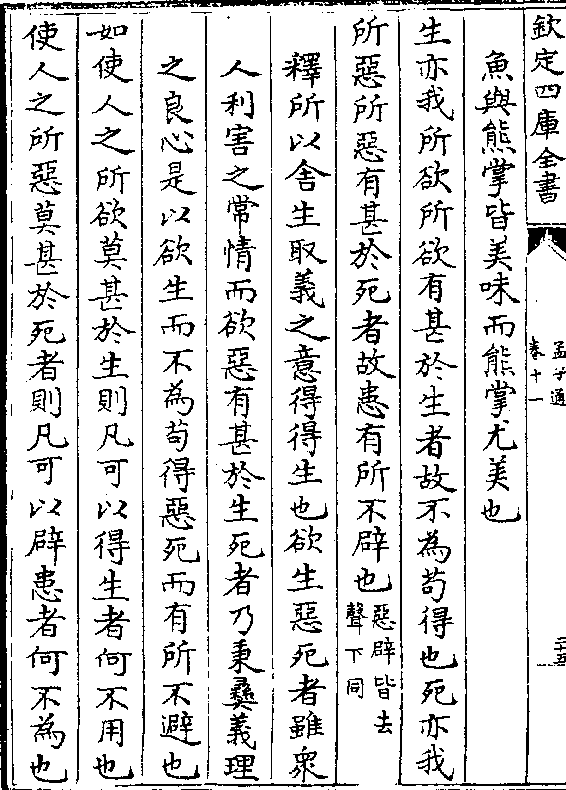 欽定四庫全書
孟子通
卷十一
二十五
魚與熊掌皆美味而熊掌尤美也
生亦我所欲所欲有甚於生者故不為苟得也死亦我
所惡所惡有甚於死者故患有所不辟也
惡辟皆去
聲下同
釋所以舍生取義之意得得生也欲生惡死者雖衆
人利害之常情而欲惡有甚於生死者乃秉彝義理
之良心是以欲生而不為苟得惡死而有所不避也
如使人之所欲莫甚於生則凡可以得生者何不用也
使人之所惡莫甚於死者則凡可以辟患者何不為也